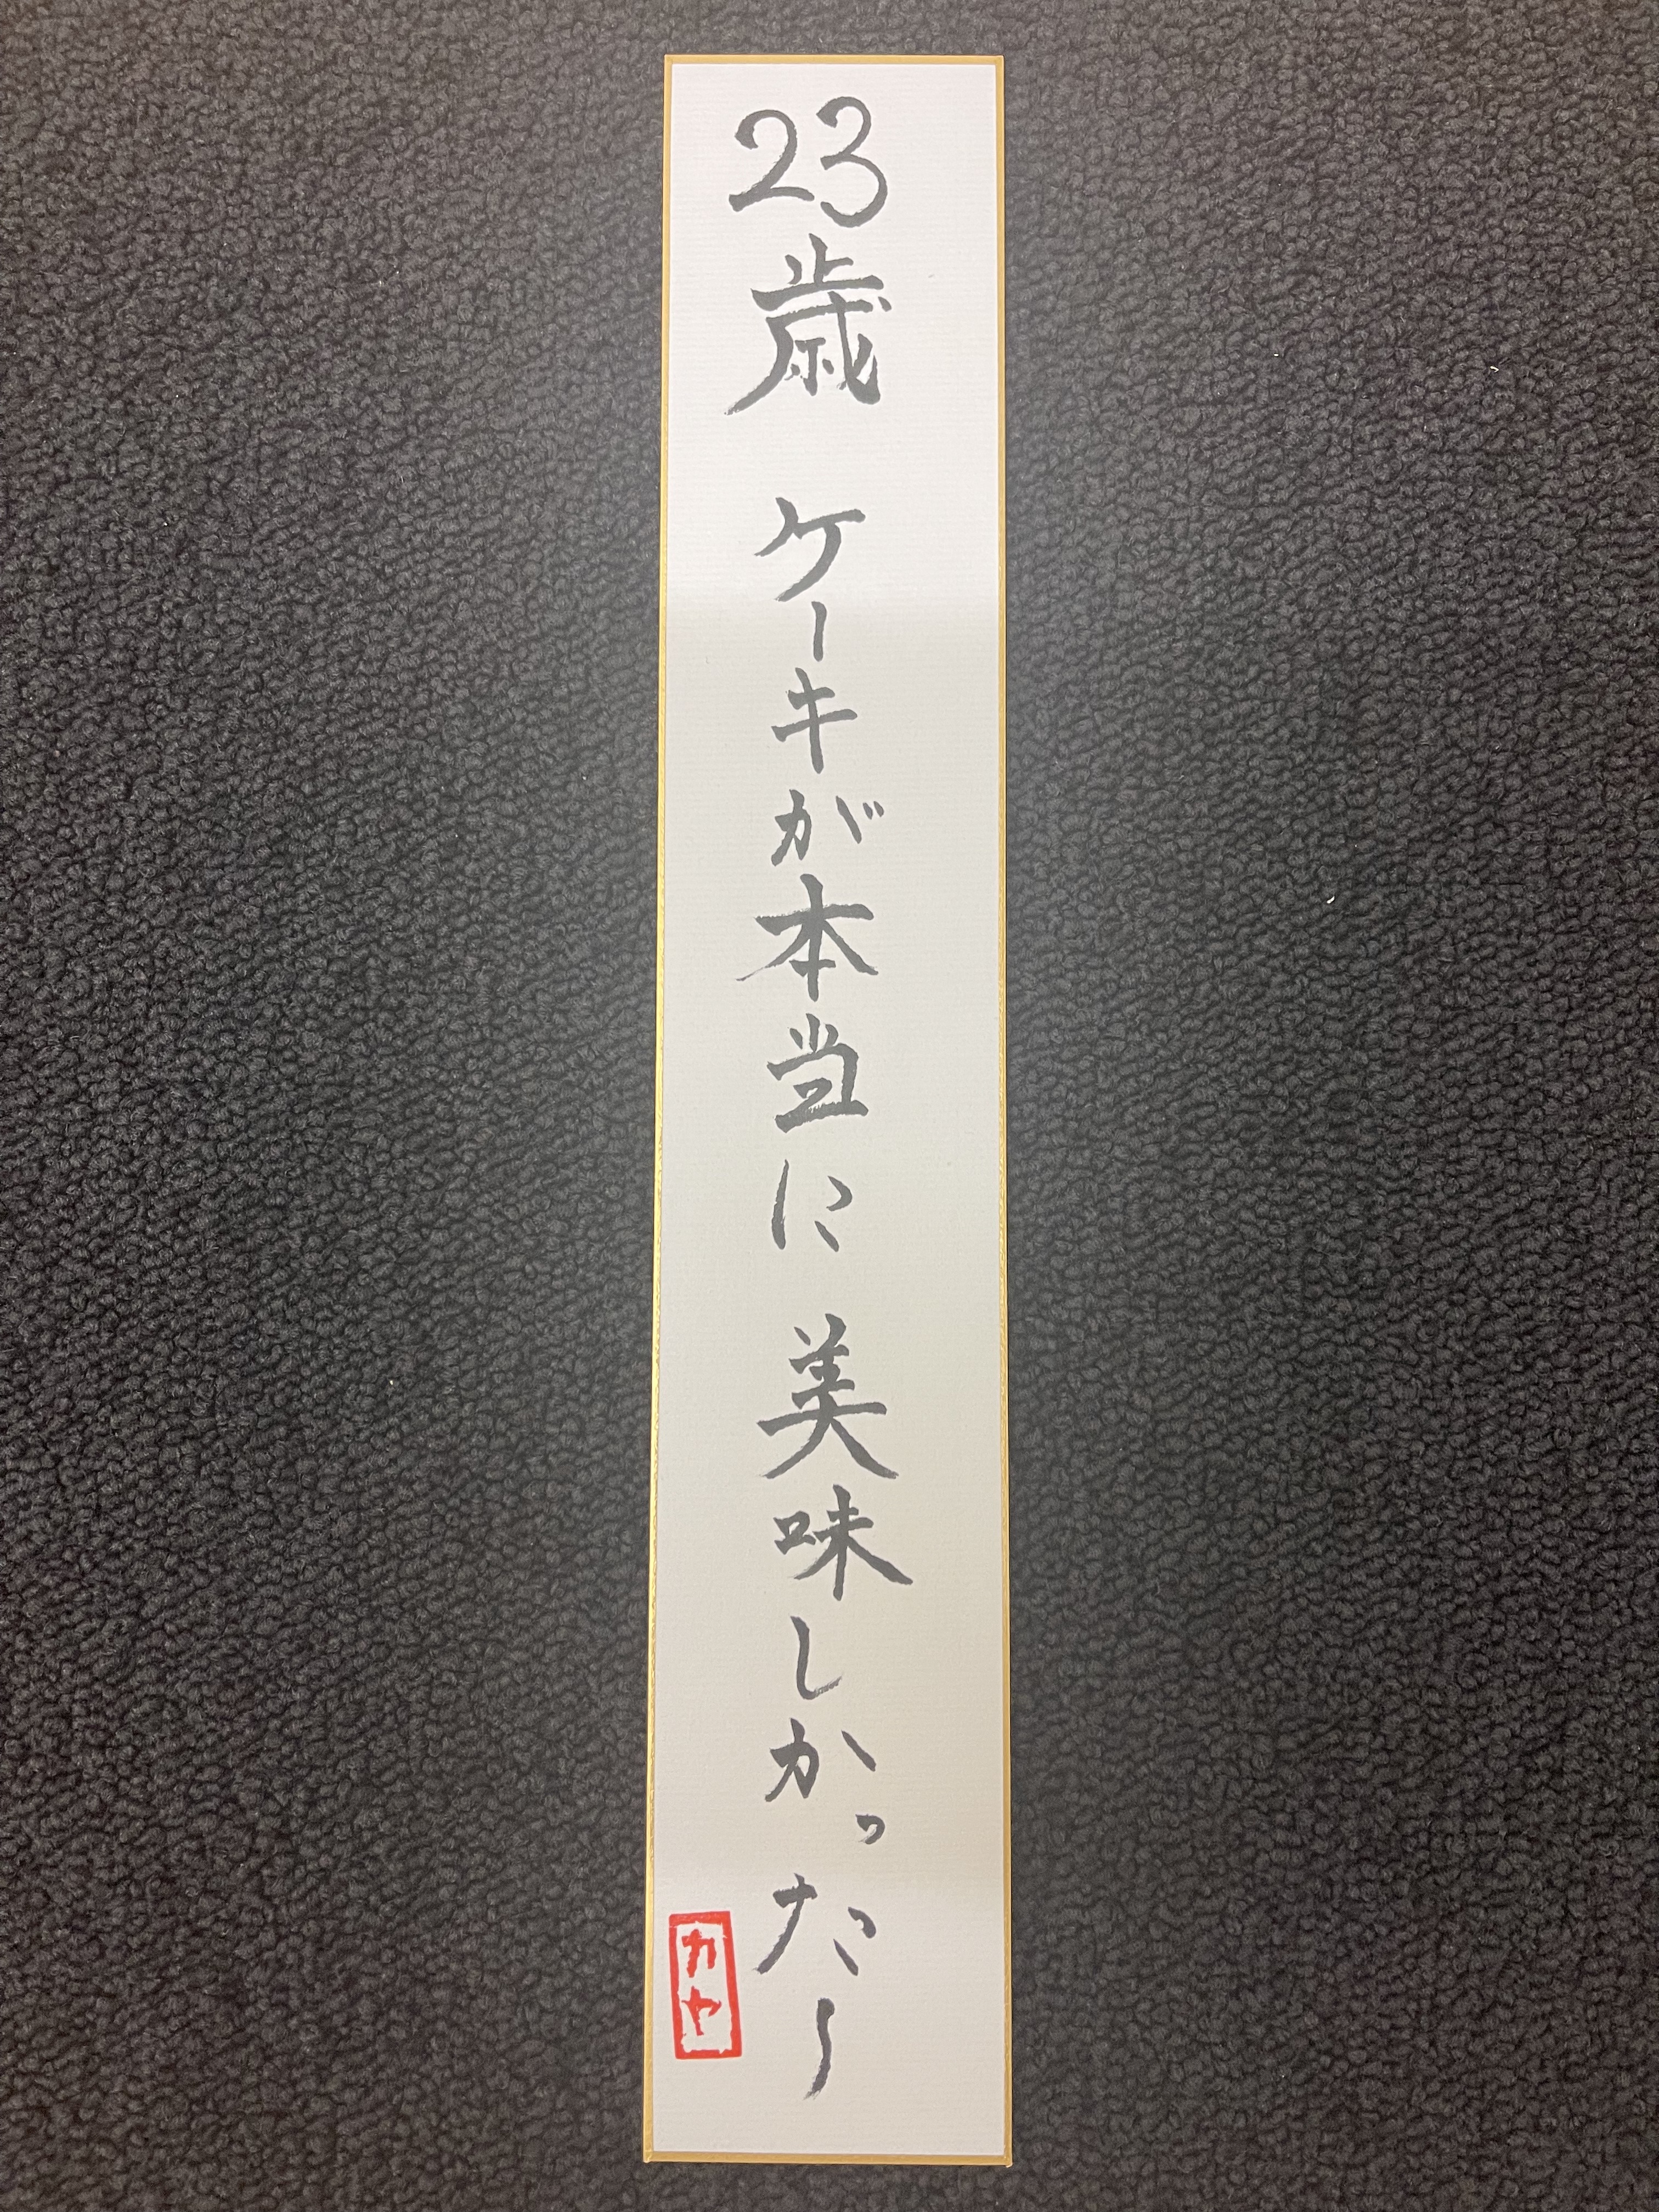 23歳 ケーキが本当に 美味しかった〜
カヤ